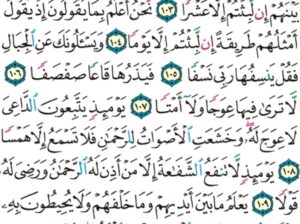 بَيْنَهُمْ إِن لَّبِثْتُمْ إِلَّا عَشْرًا ١٠٣ نَّحْنُ أَعْلَمُ بِمَا يَقُولُونَ إِذْ يَقُولُ
أَمْثَلُهُمْ طَرِيقَةً إِن لَّبِثْتُمْ إِلَّا يَوْمًا ١٠٤ وَيَسْـَٔلُونَكَ عَنِ الْجِبَالِ
فَقُلْ يَنسِفُهَا رَبِّى نَسْفًا ١٠٥ فَيَذَرُهَا قَاعًا صَفْصَفًا ١٠٦
لَّا تَرَىٰ فِيهَا عِوَجًا وَلَآ أَمْتًا ١٠٧ يَوْمَئِذٍ يَتَّبِعُونَ الدَّاعِىَ
لَا عِوَجَ لَهُۥ وَخَشَعَتِ الْأَصْوَاتُ لِلرَّحْمَٰنِ فَلَا تَسْمَعُ إِلَّا هَمْسًا
١٠٨ يَوْمَئِذٍ لَّا تَنفَعُ الشَّفَٰعَةُ إِلَّا مَنْ أَذِنَ لَهُ الرَّحْمَٰنُ وَرَضِىَ لَهُۥ
قَوْلًا ١٠٩ يَعْلَمُ مَا بَيْنَ أَيْدِيهِمْ وَمَا خَلْفَهُمْ وَلَا يُحِيطُونَ بِهِۦ